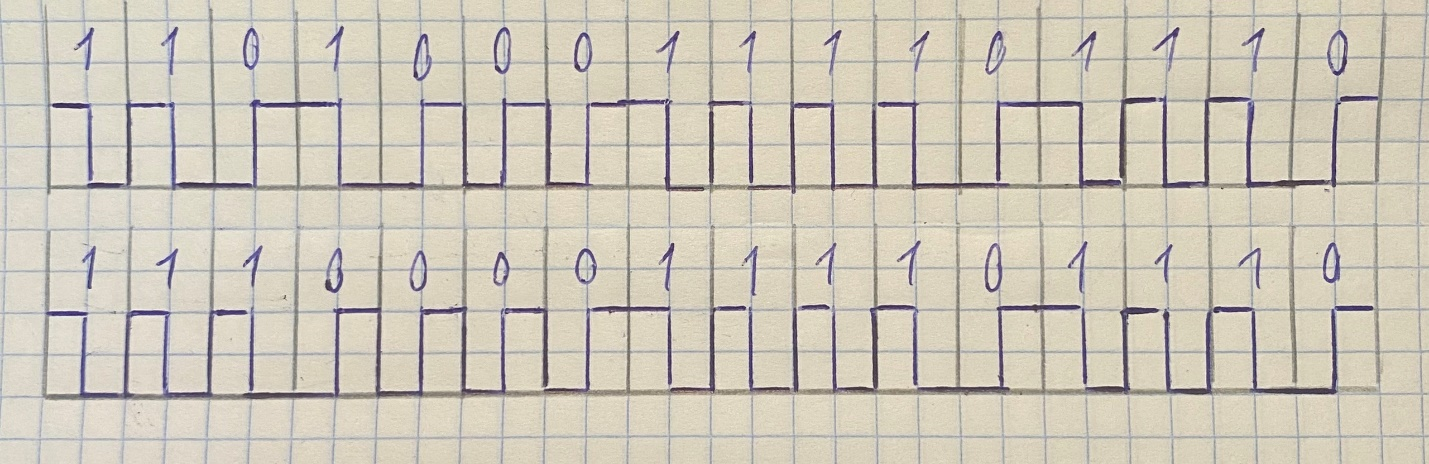 1 1 0 1 0 0 0 1 1 1 1 0 1 1 1 0
1 1 1 0 0 0 0 1 1 1 1 0 1 1 1 0